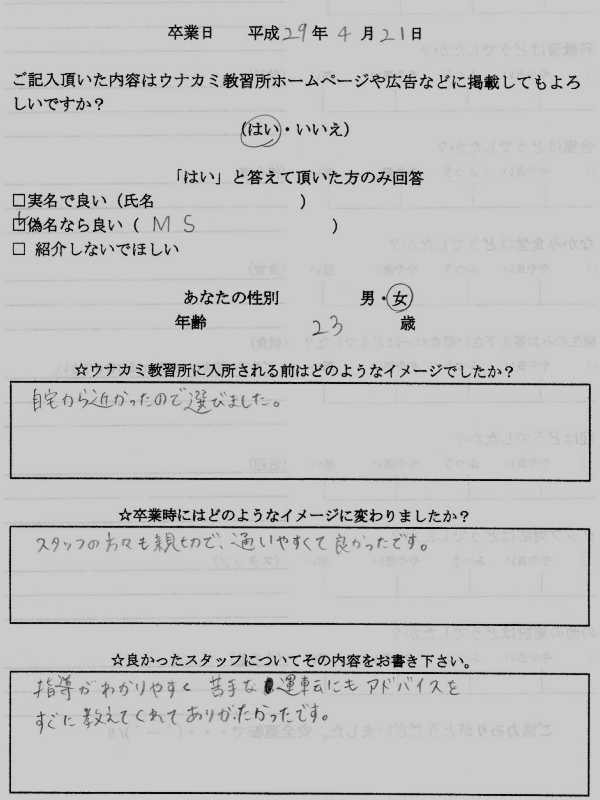 卒業日 平成29年4月21日
ご記入頂いた内容はウナカミ教習所ホームページや広告などに掲載してもよろ
しいですか?
(はい・いいえ)
「はい」と答えて頂いた方のみ回答
□実名で良い(氏名 )
☑偽名なら良い( MS )
□ 紹介しないでほしい
あなたの性別 男・女
年齢 23 歳
☆ウナカミ教習所に入所される前はどのようなイメージでしたか?
自宅から近かったので選びました。
☆卒業時にはどのようなイメージに変わりましたか?
スタッフの方々も親切で、通いやすくて良かったです。
☆良かったスタッフについてその内容をお書き下さい。
指導がわかりやすく 苦手な運転にもアドバイスを
すぐに教えてくれてありがたかったです。